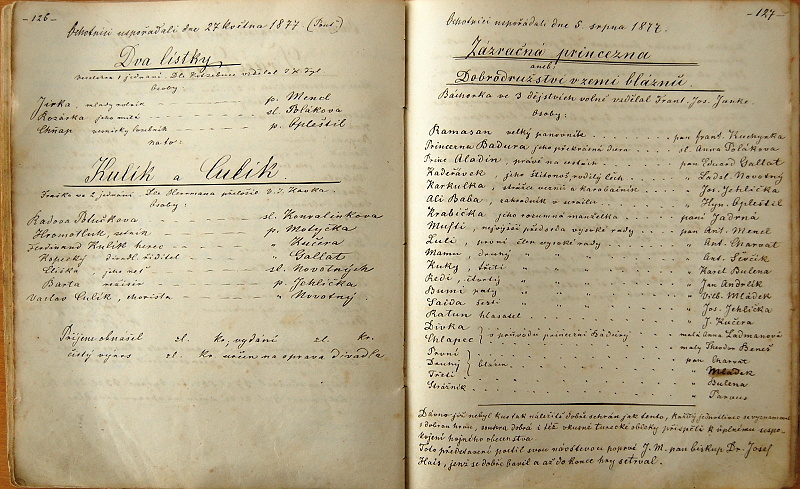 -126-
Ochotníci uspořádali dne 27 května 1877
Dva lístky,
veselohra v 1 jednání. Dle Kotzebue vzdělal J. K. Tyl.
Osoby:
Jirka, mladý rolník - - - p. Mencl
Rozárka jeho milá - - - sl. Polákova
Chňap vesnický - - - p. Opleštil
na to:
Kulík a Čulík.
Fraška ve 2 jednání. Dle Herrmana přeložil
Osoby:
Radova Poluškova - - - sl. Konvalinkova
Hromotluk, - - - p. Motyčka
Ferdinand Kulík herec - - - " Kučera
Kopecký divadl. ředitel - - - " Gallat
Eliška jeho neť - - - sl. Novotných
Barta režisér - - - p. Jehlička
Vaclav Čulík, chorista - - - " Novotný.
Příjem obnášel zl. kr, vydání zl. kr.
čistý výnos zl. kr určen na opravu divadla
-127-
Ochotníci uspořádali dne 5. srpna 1877.
Zázračná princezna
aneb:
Dobrodružství v zemi bláznů.
Báchorka ve 3 dějstvích volně vzdělal Frant. Jos.
Osoby:
Ramasan velký panovník . . . . pan Frant. Kuchynka
Princezna Badura jeho překrásná dcera . . sl. Anna Polákova
Princ Aladin, právě na cestách . . . pan Eduard Gallat
Kadeřávek, jeho . . . " Ladsl. Novotný
Karkulka, strážce vězni a . . . " Jos. Jehlička
Ali Baba, zahradník v . . . " Hyn. Opleštil
Krabička jeho rozumná manželka . . . paní Jadrná
Mufti, nejvyšší předseda vysoké rady . . pan Ant. Mencl
Luli, první člen vysoké rady . . . " Ant. Charvat
Mamu, druhý " " " . . . " Ant. Ševčík
Kuky, třetí " " " . . . " Karel Bulena
Redi, čtvrtý " " " . . . " Jan Andrlík
Bumi pátý " " " . . . " Vilb. Mládek
Saida šestý " " " . . . " Jos. Jehlička
Ratun hlasatel . . . " J. Kučera
Dívka } v průvodu princezni Badury . . malá Anna Ladmanová
Chlapec } malý Theodor Beneš
První } pan Charvát
Druhý } blázen . . . " Mládek
Třetí } " Bulena
Strážník . . . "
Dávno již nebyl kus tak náležitě dobře sehrán jak tento, každý jednotlivec se vyznamenal
dobrou hrou, souhra dobrá i též vkusné turecké obleky přispěli k úplnému uspo-
kojení hojného obecenstva.
Toto představení poctil svou návštěvou poprvé J. M. pan biskup Dr. Josef
Hais, jenž se dobře bavil a až do konce hry setrval.